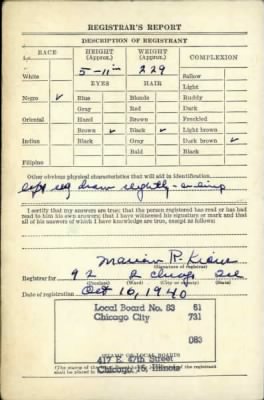 REGISTRAR'S REPORT
DESCRIPTION OF REGISTRANT
RACE HEIGHT (Approx.) WEIGHT (Approx.) COMPLEXION
5-11 in 229
White EYES HAIR Sallow
Light
Negro ✓ Blue Blonde Ruddy
Gray Red Dark
Oriental Hazel Brown Freckled
Brown ✓ Black ✓ Light brown
Indian Black Gray Dark brown ✓
Bald Black
Filipino
Other obvious physical characteristics that will aid in identification
left leg draw slightly
I certify that my answers are true; that the person registered has read or has had
read to him his own answers; that I have witnessed his signature or mark and that
all of his answers of which I have knowledge are true, except as follows:
Marion P.
(Signature of registrar)
Registrar for 92 2 Chicago Ill
(Precinct) (Ward) (City or county) (State)
Date of registration Oct 16, 1940
Local Board No. 83 61
Chicago City 731
083
STAMP OF LOCAL BOARD
417 E. 47th Street
Chicago, 15, Illinois
(The stamp of the of the registrant
shall be placed in